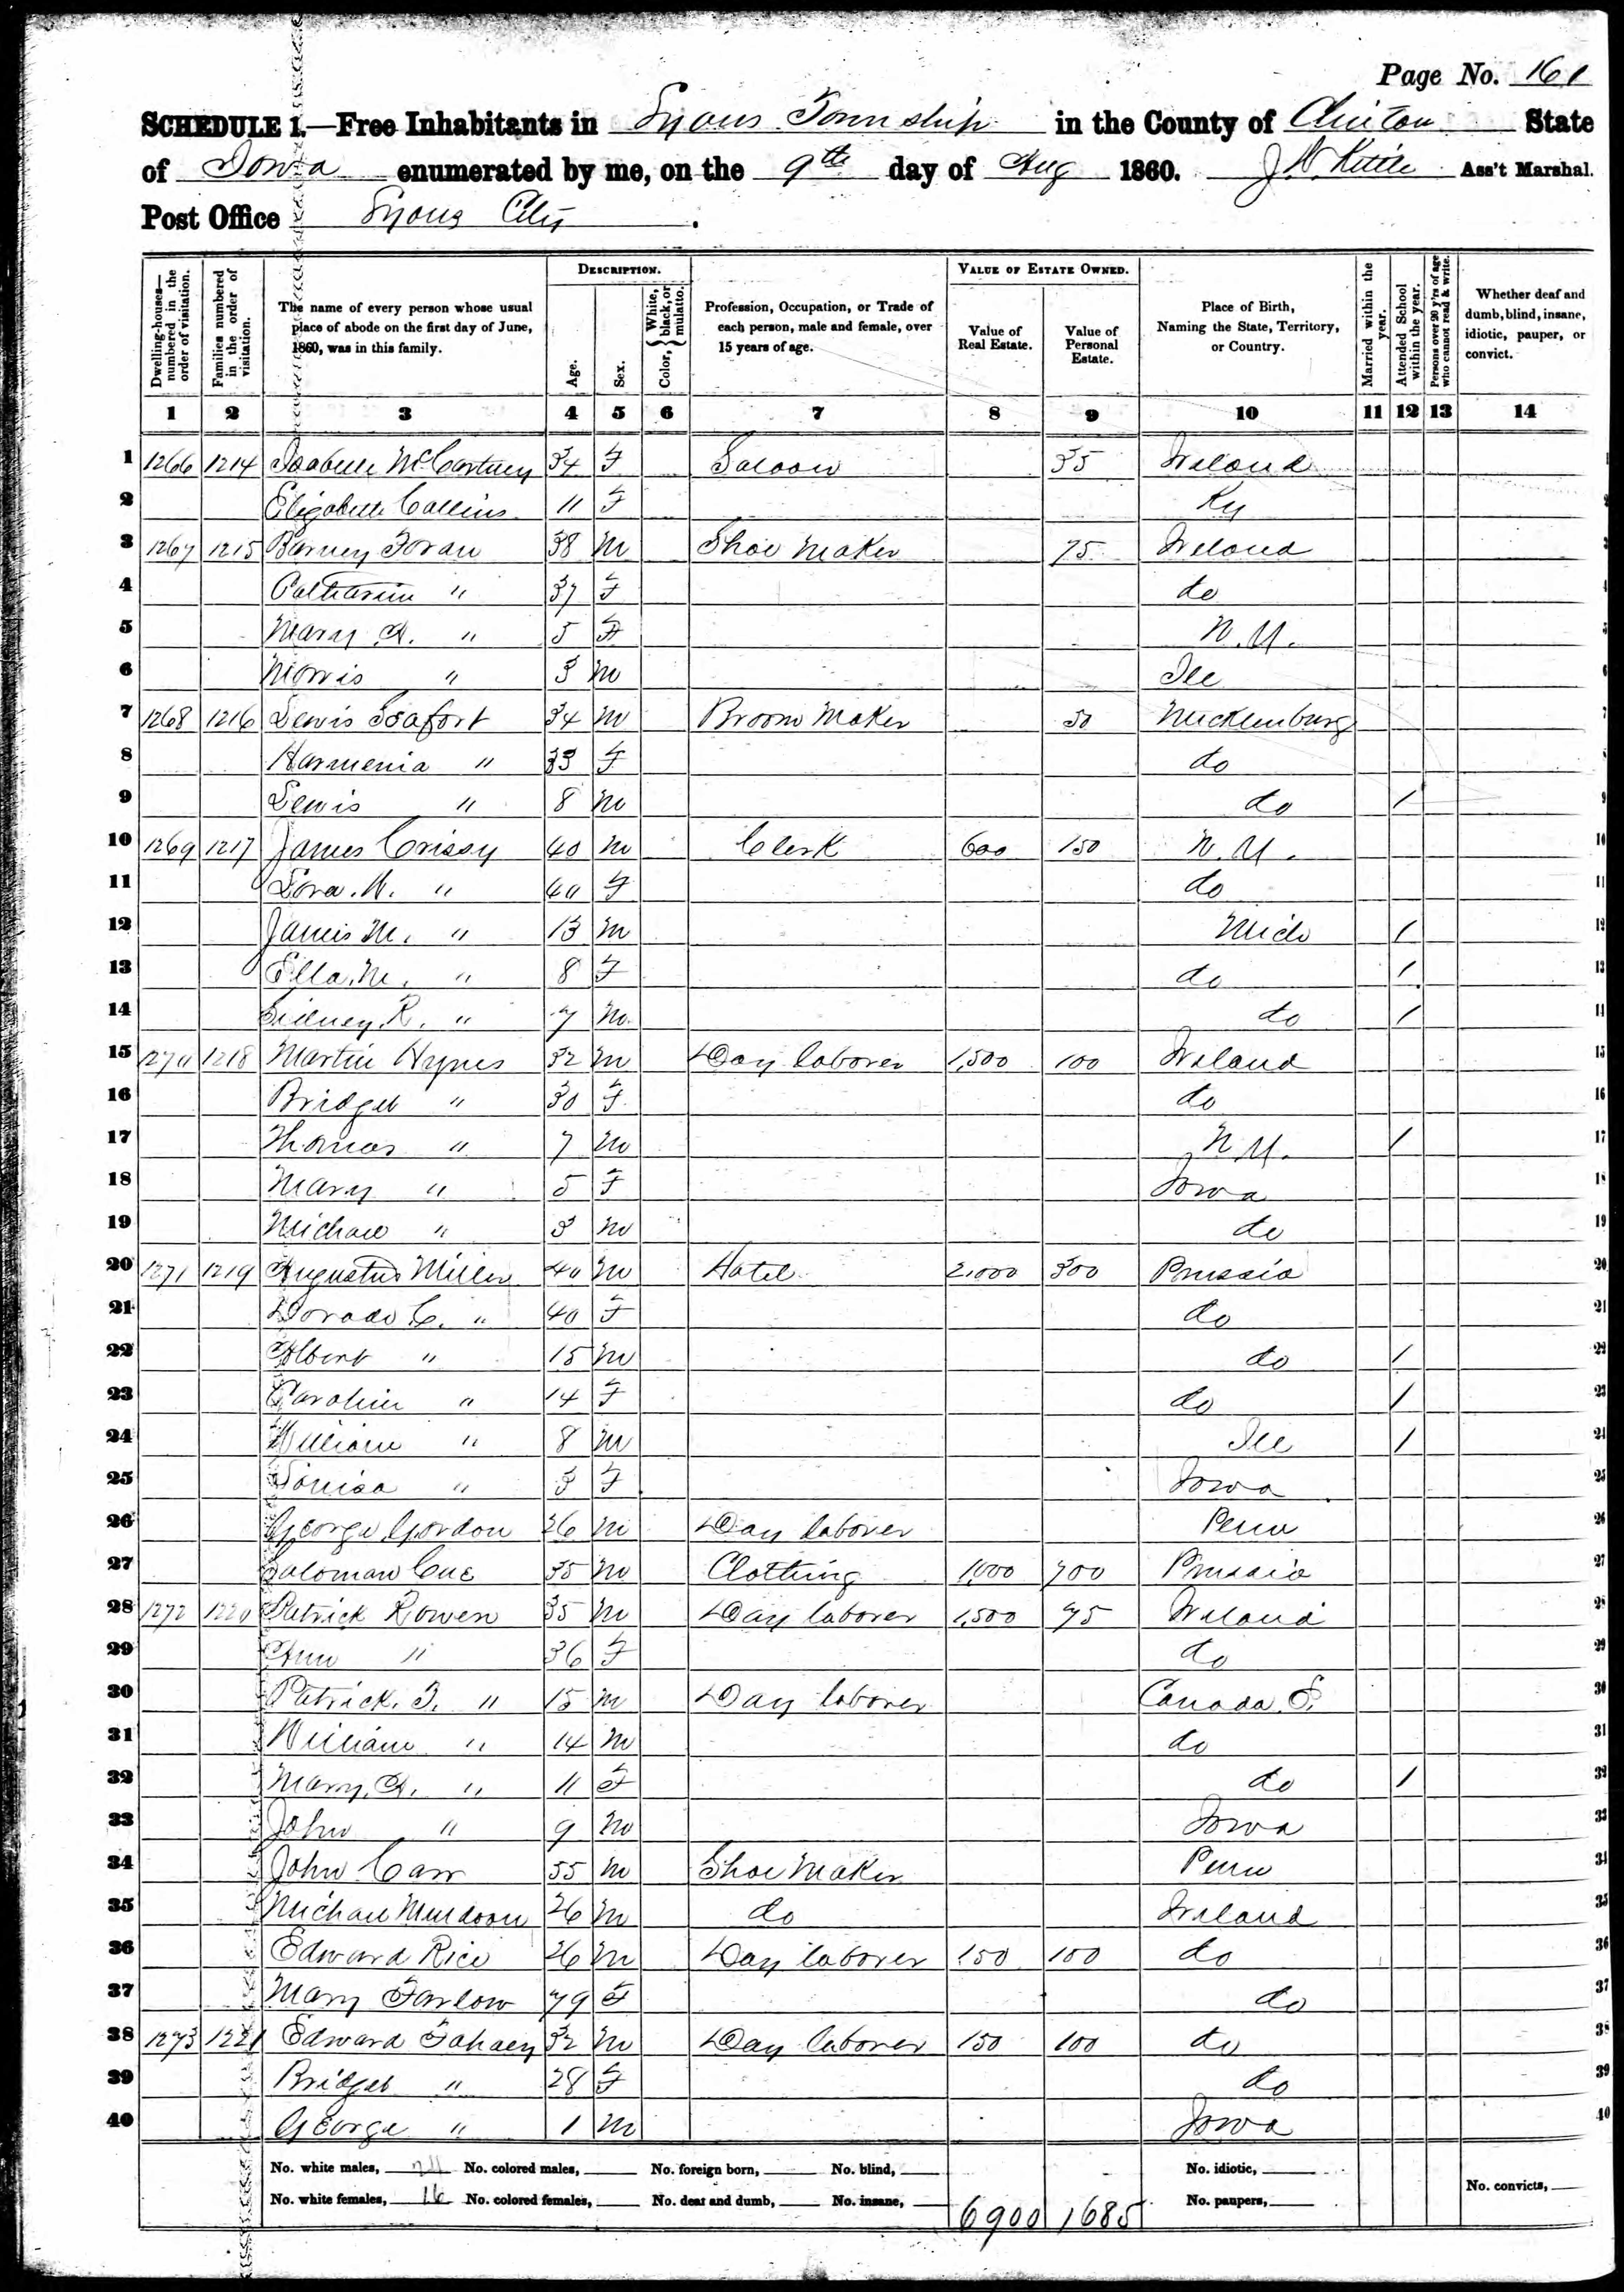 Page No. 161
SCHEDULE 1.—Free Inhabitants in Lyons Township in the County of Clinton State
of Iowa enumerated by me, on the 9th day of Aug 1860. Ass't Marshal.
Post Office Lyons City.
DESCRIPTION. VALUE OF ESTATE OWNED.
Dwelling-houses—numbered in the order of visitation. Families numbered in the order of visitation. The name of every person whose usual place of abode on the first day of June, 1860, was in this family. Age. Sex. Color, { White, black, or mulatto. Profession, Occupation, or Trade of each person, male and female, over 15 years of age. Value of Real Estate. Value of Personal Estate. Place of Birth, Naming the State, Territory, or Country. Married within the year. Attended School within the year. Persons over 20 y'rs of age who cannot read & write. Whether deaf and dumb, blind, insane, idiotic, pauper, or convict.
1 2 3 4 5 6 7 8 9 10 11 12 13 14
1 1266 1214 Isabelle McCartney 34 F Saloon 35 Ireland 1
2 Elizabeth Collins 11 F Ky 2
3 1267 1215 Barney Foran 38 M Shoe Maker 75 Ireland 3
4 Catharine " 37 F do 4
5 Mary A. " 5 F N.Y. 5
6 Morris " 3 M Ill 6
7 1268 1216 Lewis Seafort 34 M Broom Maker 50 Mecklenburg 7
8 Harmenia " 33 F do 8
9 Lewis " 8 M do / 9
10 1269 1217 James Crissy 40 M Clerk 600 150 N.Y. 10
11 Lora. " 40 F do 11
12 James M. " 13 M Mich / 12
13 Ella. M. " 8 F do / 13
14 Sidney. R. " 7 M do / 14
15 1270 1218 Martin Hynes 32 M Day laborer 1,500 100 Ireland 15
16 Bridget " 30 F do 16
17 Thomas " 7 M N.Y. / 17
18 Mary " 5 F Iowa 18
19 Michael " 3 M do 19
20 1271 1219 Augustus Miller 40 M Hotel 2,000 300 Prussia 20
21 C. " 40 F do 21
22 Albert " 15 M do / 22
23 Caroline " 14 F do / 23
24 William " 8 M Ill / 24
25 Louisa " 3 F Iowa 25
26 George Gordon 26 M Day laborer Penn 26
27 Saloman Cue 35 M Clothing 1,000 700 Prussia 27
28 1272 1220 Patrick Rowen 35 M Day laborer 1,500 75 Ireland 28
29 Ann " 36 F do 29
30 Patrick. " 15 M Day laborer Canada. 30
31 William " 14 M do 31
32 Mary. A. " 11 F do / 32
33 John " 9 M Iowa 33
34 John Carr 55 M Shoe Maker Penn 34
35 Michael Muldoon 26 M do Ireland 35
36 Edward Rice 26 M Day laborer 150 100 do 36
37 Mary Farlow 79 F do 37
38 1273 1221 Edward Fahaey 32 M Day laborer 150 100 do 38
39 Bridget " 28 F do 39
40 George " 1 M Iowa 40
No. white males, No. colored males, No. foreign born, No. blind, No. idiotic,
No. white females, 16 No. colored females, No. deaf and dumb, No. insane, 6900 1685 No. paupers, No. convicts,